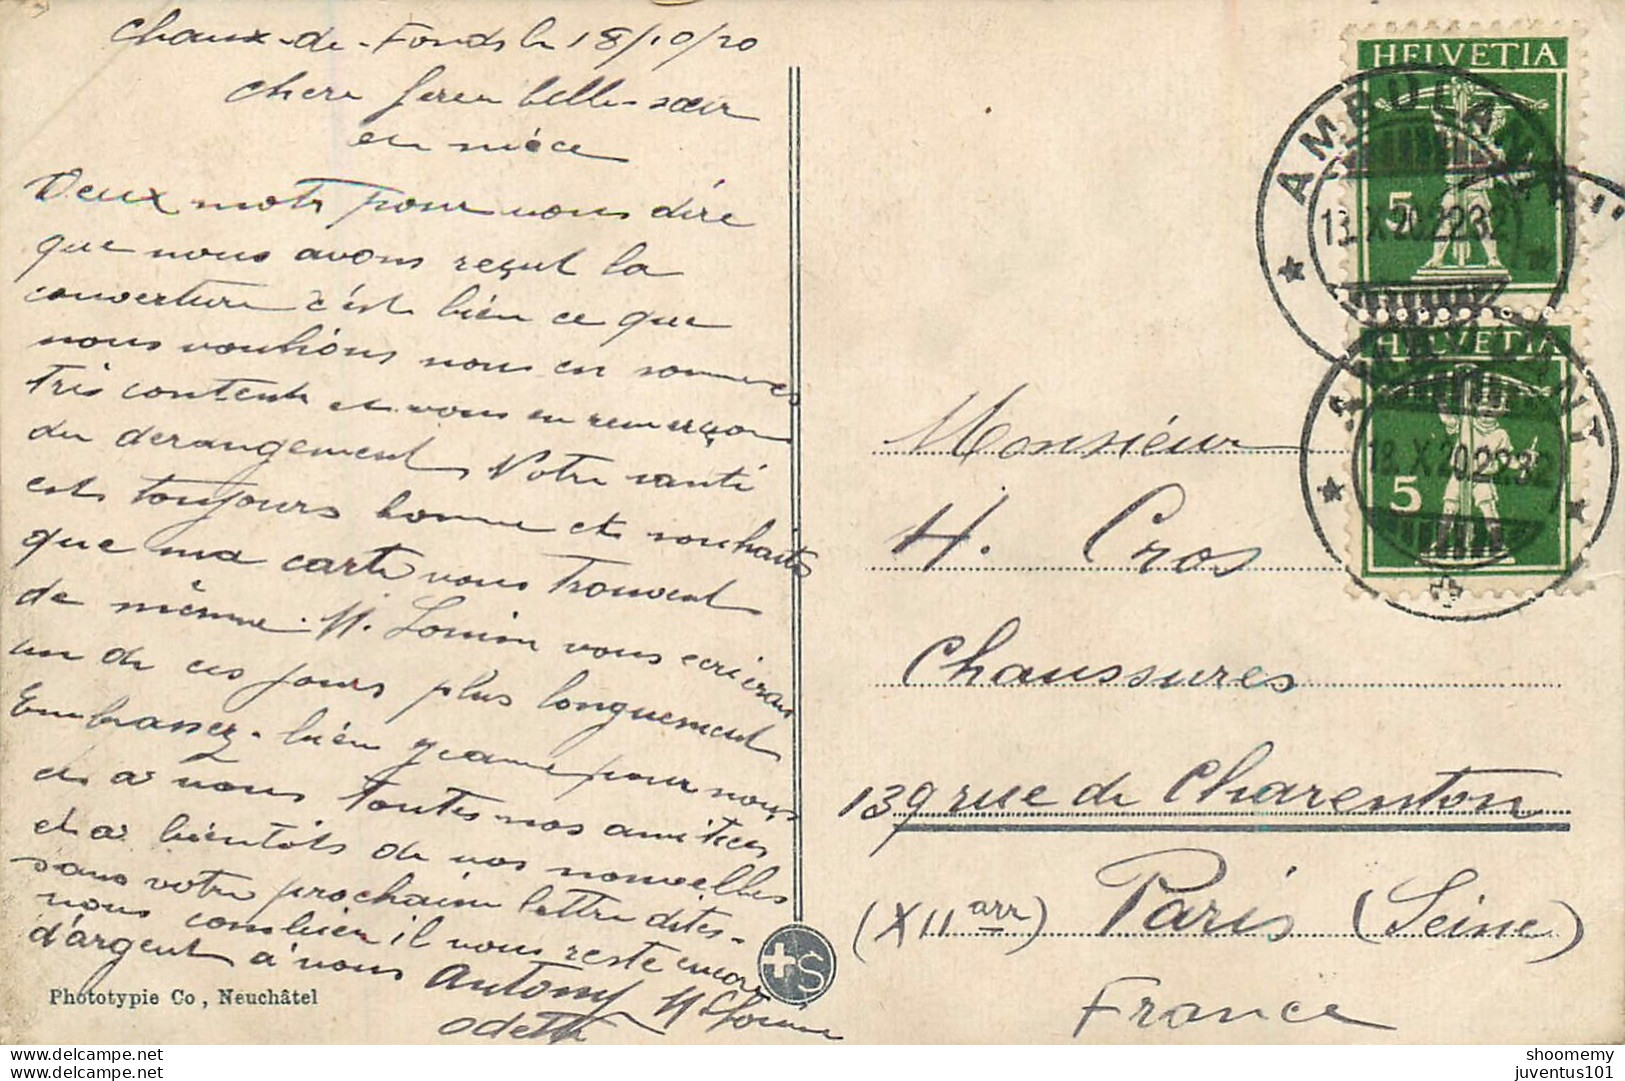 Chaux-de-Fonds le 18/10/20
Chère frère belle-sœur
et nièce
Deux mots pour vous dire
que nous avons reçut la
couverture c'est bien ce que
nous voulions nous en sommes
très content et vous en remerçions
du derangement Votre santé
est toujours bonne et souhaite
que ma carte vous trouvent
de mème. M. Louise vous ecriras
un de ces jours plus longuement
Embrassez-bien pour nous
et à vous toutes nos amitiés
et a bientôts de vos nouvelles
sans votre prochaine lettre dites-
nous combien il vous reste encore
d'argent à vous Antony M. Louise
Odette
Phototypie Co, Neuchâtel
S
HELVETIA
5
AMBULANT
18.X.20.2232
HELVETIA
5
AMBULANT
18.X.20.2232
Monsieur
H. Cros
Chaussures
139 rue de Charenton
(XII arr) Paris (Seine)
France
www.delcampe.net
www.delcampe.net
shoomemy
juventus101